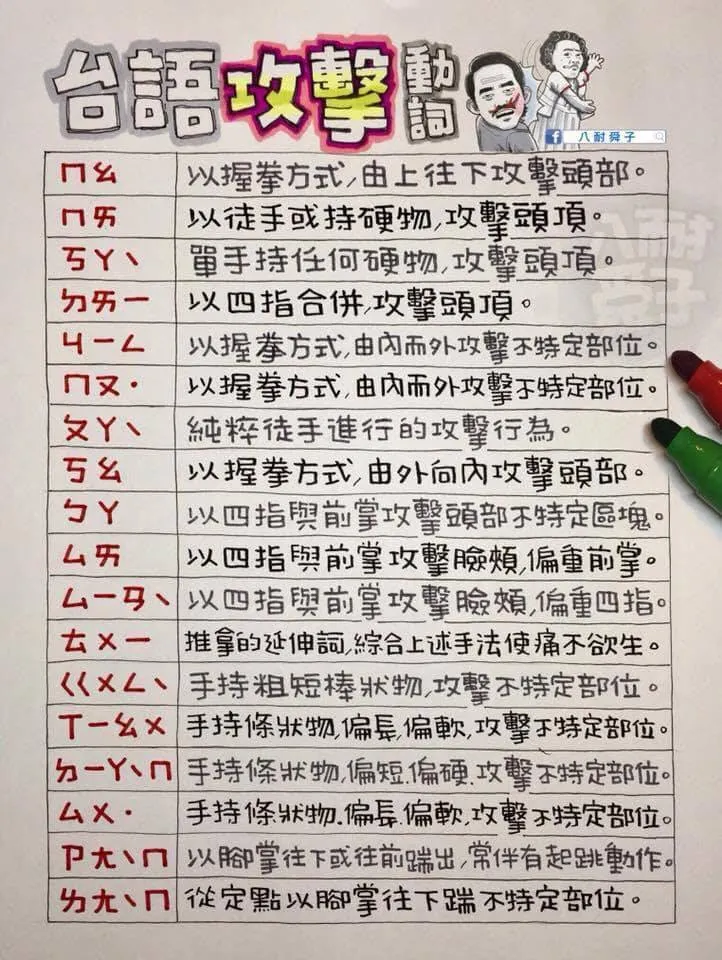 台語攻擊動詞
八耐舜子
ㄇㄠ 以握拳方式,由上往下攻擊頭部。
ㄇㄞ 以徒手或持硬物,攻擊頭頂。
ㄎㄚˋ 單手持任何硬物,攻擊頭頂。
ㄉㄞㄧ 以四指合併,攻擊頭頂。
ㄐㄧㄥ 以握拳方式,由內而外攻擊不特定部位。
ㄇㄡ˙ 以握拳方式,由內而外攻擊不特定部位。
ㄆㄚˋ 純粹徒手進行的攻擊行為。
ㄎㄠ 以握拳方式,由外向內攻擊頭部。
ㄅㄚ 以四指與前掌攻擊頭部不特定區塊。
ㄙㄞ 以四指與前掌攻擊臉頰,偏重前掌。
ㄙㄧㄢˋ 以四指與前掌攻擊臉頰,偏重四指。
ㄊㄨㄧ 推拿的延伸詞,綜合上述手法使痛不欲生。
ㄍㄨㄥˋ 手持粗短棒狀物,攻擊不特定部位。
ㄒㄧㄠㄨ 手持條狀物,偏長,偏軟,攻擊不特定部位。
ㄉㄧㄚˋㄇ 手持條狀物,偏短.偏硬.攻擊不特定部位。
ㄙㄨ˙ 手持條狀物.偏長.偏軟,攻擊不特定部位。
ㄗㄤˋㄇ 以腳掌往下或往前踹出,常伴有起跳動作。
ㄌㄤˋㄇ 從定點以腳掌往下踹不特定部位。
八耐
舜子